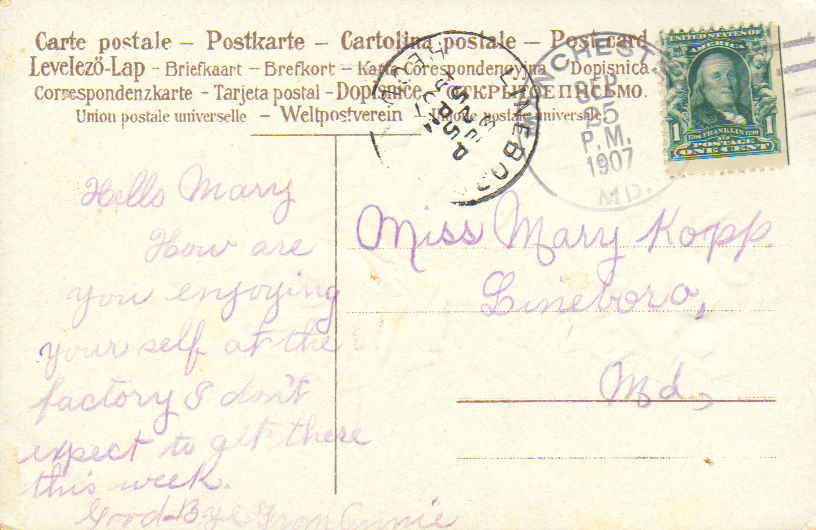 Carte postale – Postkarte – Cartolina postale – Post card
Levelező-Lap – Briefkaart – Brefkort – Karta Corespondencyjna – Dopisnica
Correspondenzkarte – Tarjeta postal – Dopisnice – ОТКРЫТОЕ ПИСЬМО.
Union postale universelle – Weltpostverein – Unione postale universale
LINEBORO
SEP
25
P.M.
1907
MD.
UNITED STATES OF
AMERICA
1 1
POSTAGE
ONE CENT
Hello Mary
How are
you enjoying
your self at the
factory I don't
expect to get there
this week.
Good-Bye From Annie
Miss Mary Kopp.
Lineboro,
Md.,